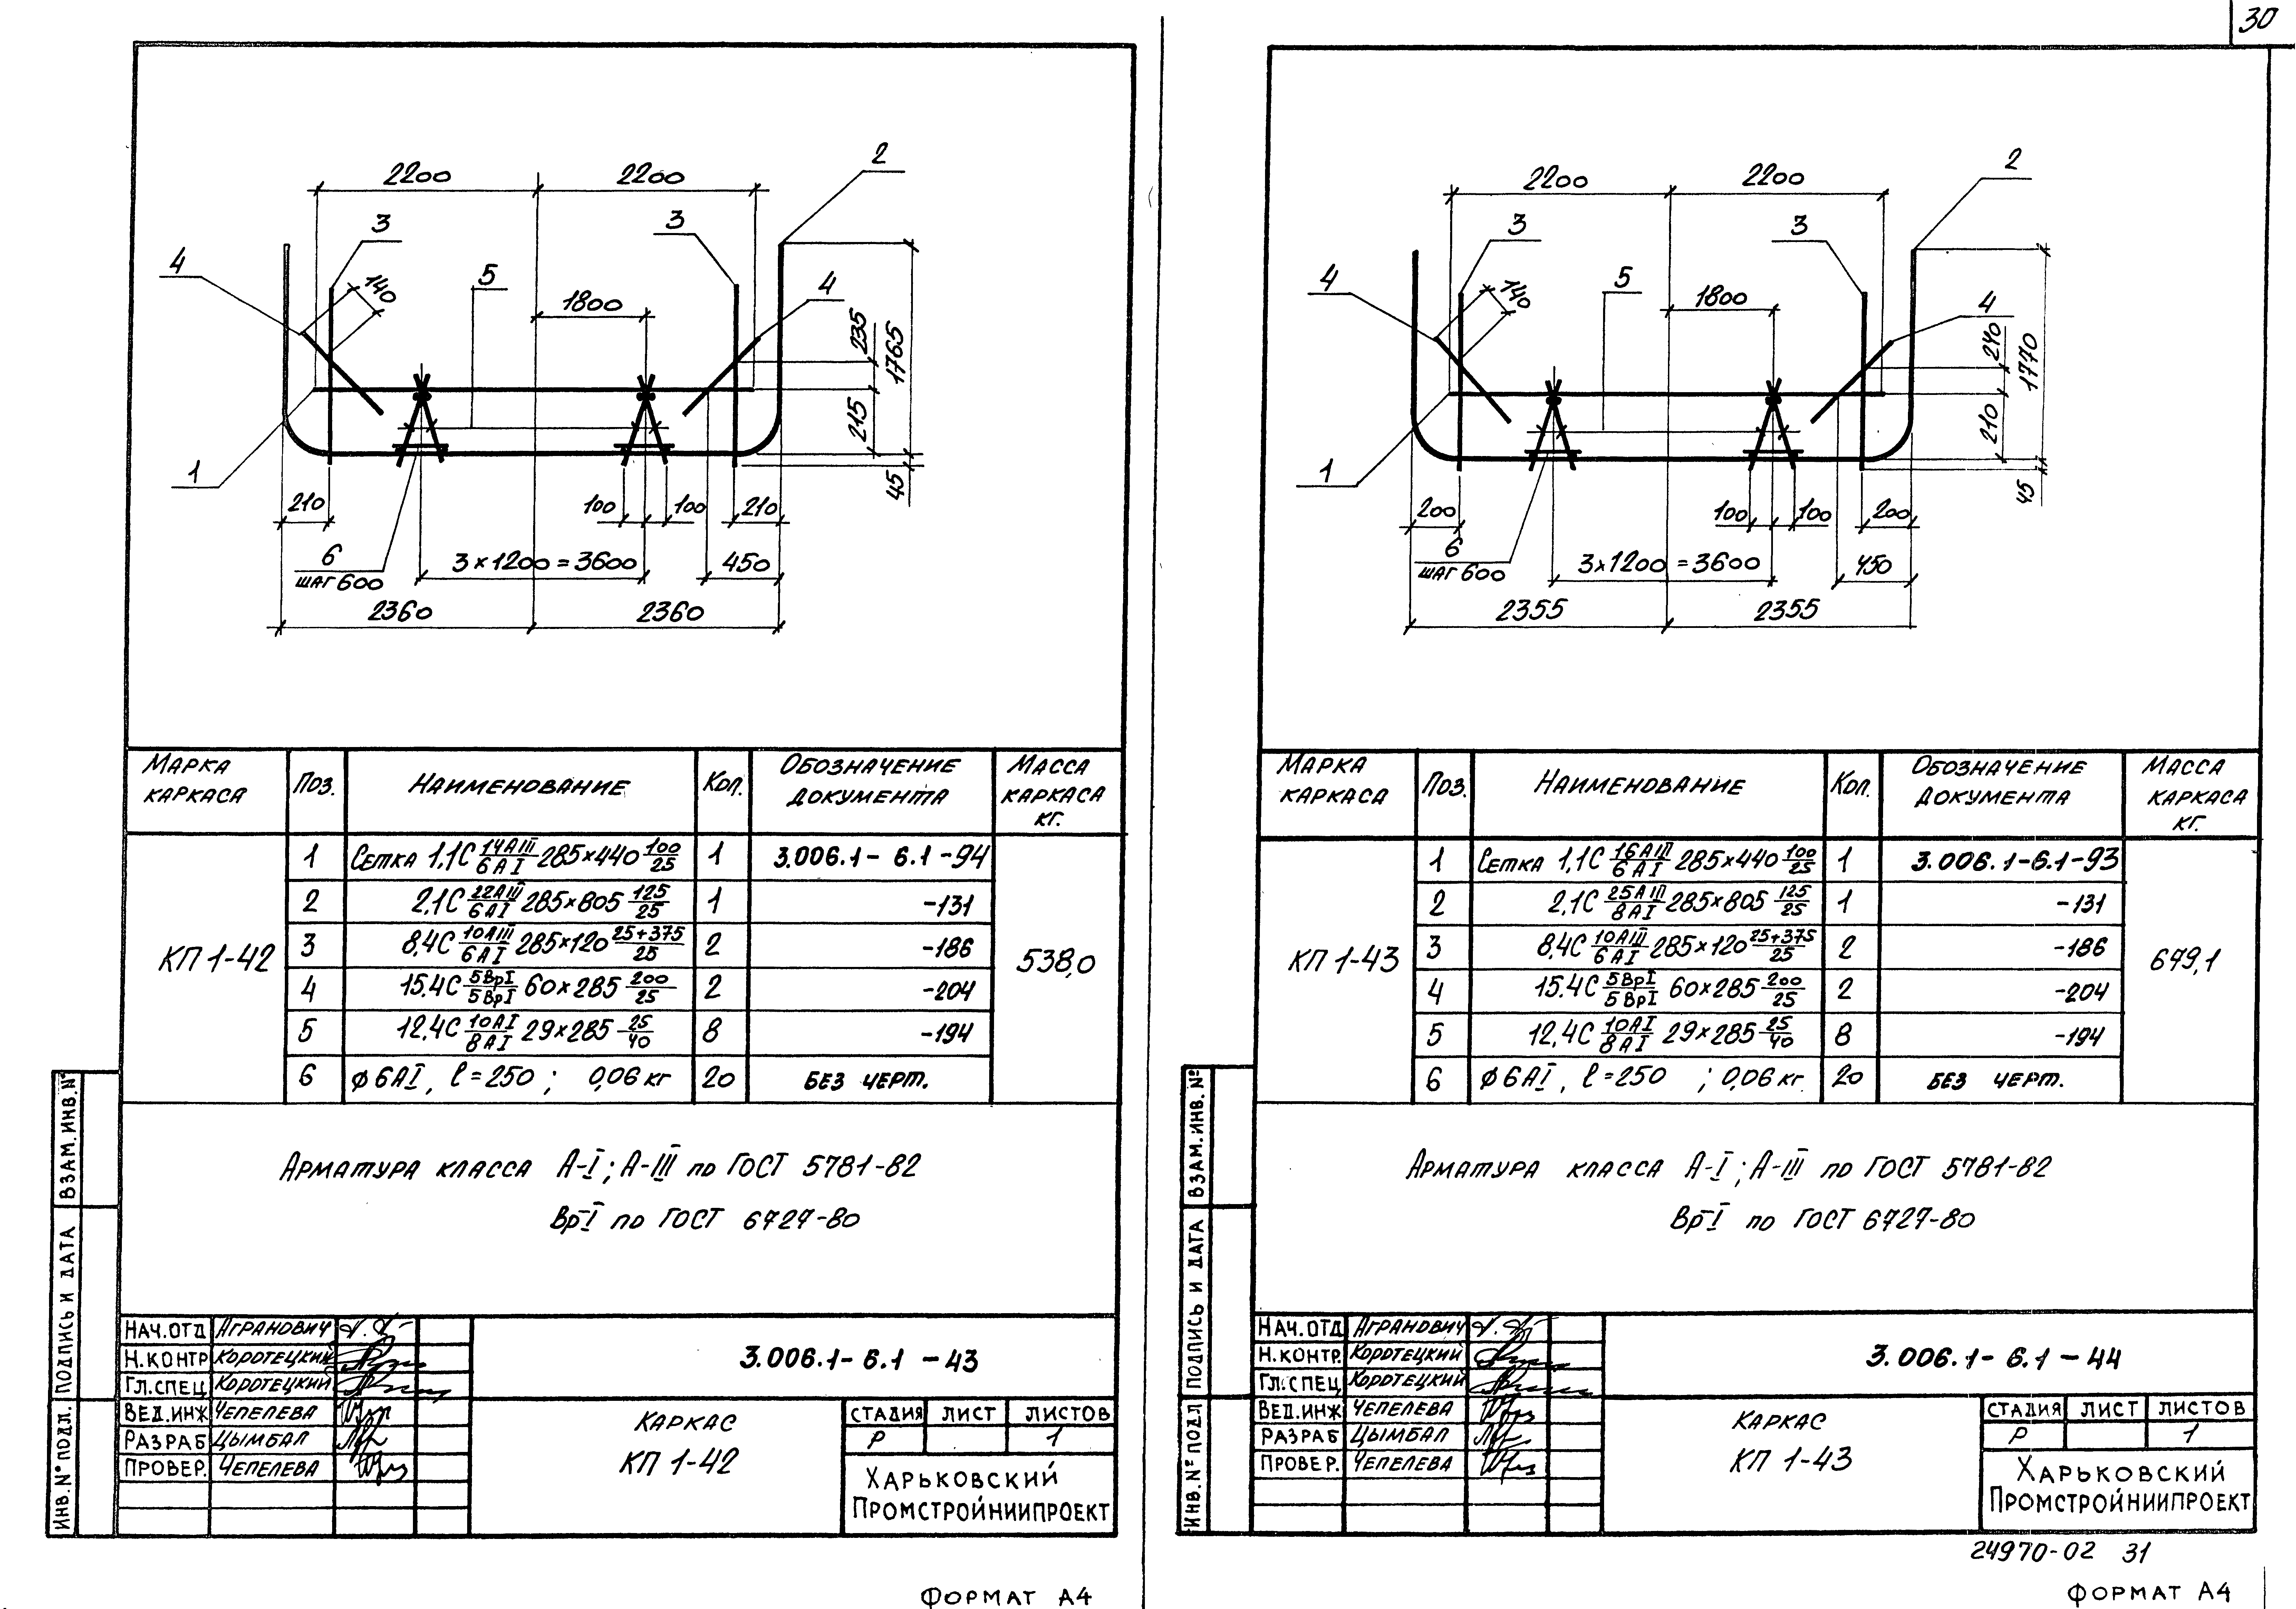 30
2200 2200
2
3
3
4
140
5
1800
4
235
1765
215
1
45
210
100 100 210
6
шаг 600
3×1200=3600
450
2360 2360
Марка каркаса Поз. Наименование Кол. Обозначение документа Масса каркаса кг.
КП 1-42
1 Сетка 1,1С 14АIII/6АI 285×440 100/25 1 3.006.1-6.1-94
2 2,1С 22АIII/6АI 285×805 125/25 1 -131
3 8,4С 10АIII/6АI 285×120 25+375/25 2 -186
4 15,4С 5ВрI/5ВрI 60×285 200/25 2 -204
5 12,4С 10АI/8АI 29×285 25/40 8 -194
6 ф6АI, ℓ=250 ; 0,06 кг 20 без черт.
538,0
Арматура класса А-I; А-III по ГОСТ 5781-82
Вр-I по ГОСТ 6727-80
Взам. инв. №
Подпись и дата
Инв. № подл.
Нач. отд Агранович
Н. контр Коротецкий
Гл. спец Коротецкий
Вед. инж Чепелева
Разраб Цымбал
Провер. Чепелева
3.006.1-6.1-43
Каркас
КП 1-42
Стадия Лист Листов
Р 1
Харьковский
Промстройниипроект
Формат А4
2200 2200
2
3
3
4
140
5
1800
4
240
1770
210
1
45
200
100 100 200
6
шаг 600
3×1200=3600
450
2355 2355
Марка каркаса Поз. Наименование Кол. Обозначение документа Масса каркаса кг.
КП 1-43
1 Сетка 1,1С 16АIII/6АI 285×440 100/25 1 3.006.1-6.1-93
2 2,1С 25АIII/8АI 285×805 125/25 1 -131
3 8,4С 10АIII/6АI 285×120 25+375/25 2 -186
4 15,4С 5ВрI/5ВрI 60×285 200/25 2 -204
5 12,4С 10АI/8АI 29×285 25/40 8 -194
6 ф6АI, ℓ=250 ; 0,06 кг 20 без черт.
679,1
Арматура класса А-I; А-III по ГОСТ 5781-82
Вр-I по ГОСТ 6727-80
Взам. инв. №
Подпись и дата
Инв. № подл
Нач. отд Агранович
Н. контр. Коротецкий
Гл. спец Коротецкий
Вед. инж Чепелева
Разраб Цымбал
Провер. Чепелева
3.006.1-6.1-44
Каркас
КП 1-43
Стадия Лист Листов
Р 1
Харьковский
Промстройниипроект
24970-02 31
Формат А4